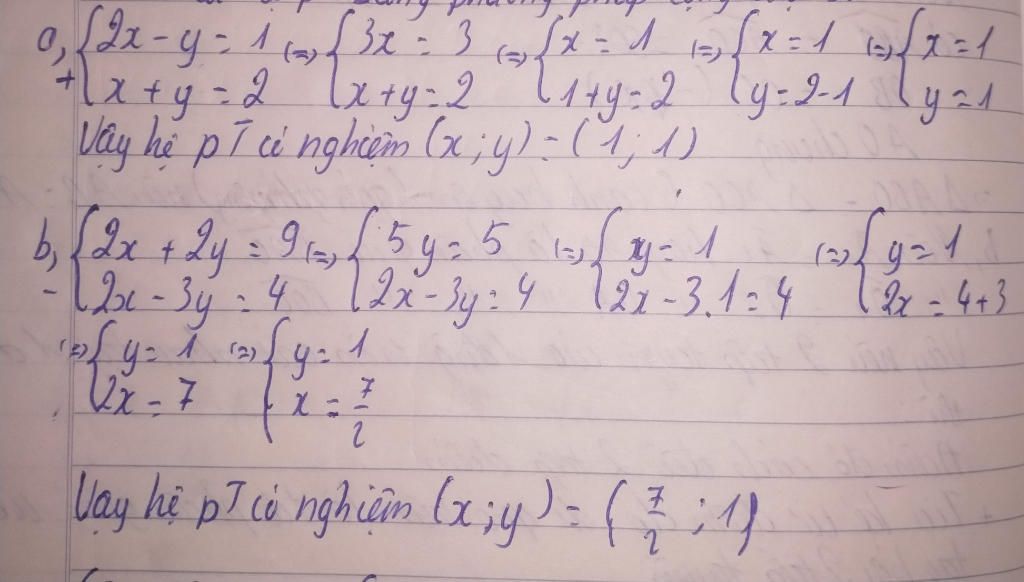 a, + { 2x - y = 1 ; x + y = 2 (=) { 3x = 3 ; x + y = 2 (=) { x = 1 ; 1 + y = 2 (=) { x = 1 ; y = 2-1 (=) { x = 1 ; y = 1
Vậy hệ pT có nghiệm (x ; y) = ( 1 ; 1)
b, - { 2x + 2y = 9 ; 2x - 3y = 4 (=) { 5y = 5 ; 2x - 3y = 4 (=) { y = 1 ; 2x - 3.1 = 4 (=) { y = 1 ; 2x = 4+3
(=) { y = 1 ; 2x = 7 (=) { y = 1 ; x = 7/2
Vậy hệ pT có nghiệm (x ; y) = ( 7/2 ; 1)